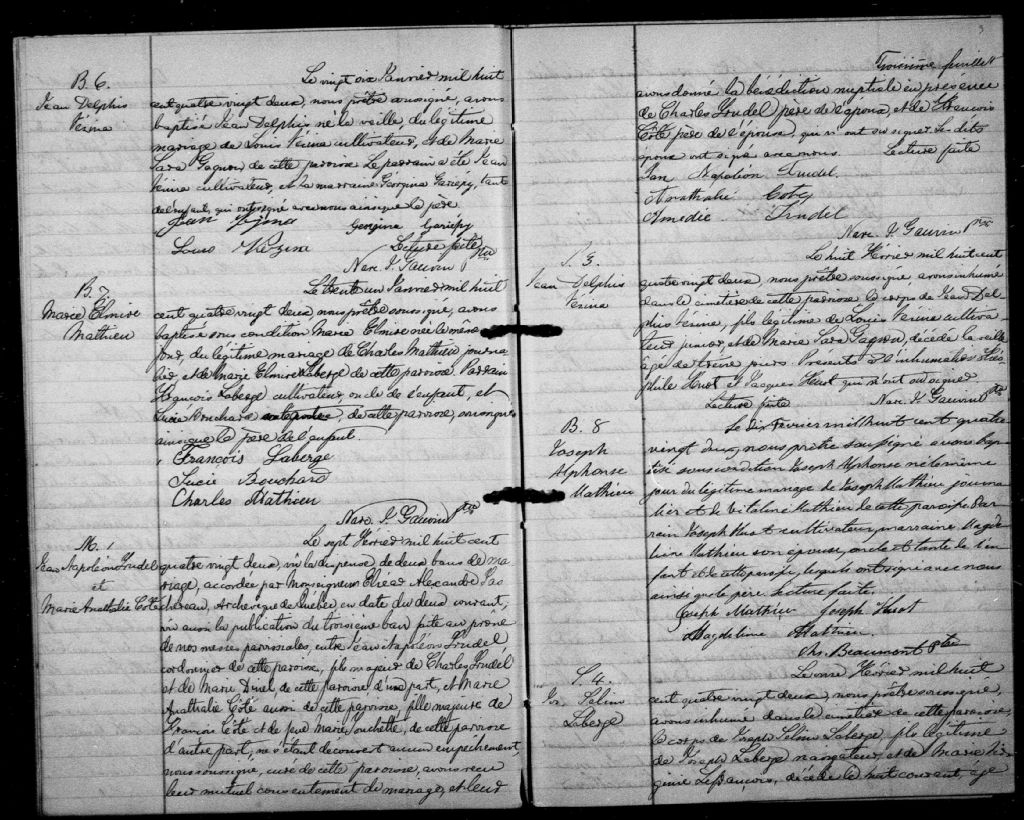 B. 6.
Jean Delphis
Vésina
Le vingt six Janvier mil huit
cent quatre vingt deux, nous prêtre soussigné, avons
baptisé Jean Delphis né la veille du légitime
mariage de Louis Vésina cultivateur, et de Marie
Sara Gagnon de cette paroisse. Le parrain a été Jean
Vésina cultivateur, et la marraine Géorgina Gariépy, tante
de l'enfant, qui ont signé avec nous ainsi que le père
Jean Vézina Georgina Gariépy
Louis Vézina Lecture faite
Narc. J. Gauvin Ptre
B. 7
Marie Elmire
Mathieu
Le trente un Janvier mil huit
cent quatre vingt deux, nous prêtre soussigné, avons
baptisé sous condition Marie Elmire née le même
jour, du légitime mariage de Charles Mathieu journa-
lier et de Marie Elmire Laberge de cette paroisse. Parrain
François Laberge cultivateur oncle de l'enfant, et
Lucie Bouchard de cette paroisse, soussignés
ainsi que le père de l'enfant.
François Laberge
Lucie Bouchard
Charles Mathieu
Narc. J. Gauvin Ptre
M. 1
Jean Napoléon Trudel
et
Marie Anathalie Côté
Le sept Février mil huit cent
quatre vingt deux, vu la dispense de deux bans de ma-
riage, accordée par Monseigneur Elzéar Alexandre Tas-
chereau, Archevêque de Québec, en date du deux courant,
vu aussi la publication du troisième ban faite au prône
de nos messes paroissiales, entre Jean Napoléon Trudel,
cordonnier de cette paroisse, fils majeur de Charles Trudel
et de Marie de cette paroisse d'une part, et Marie
Anathalie Côté aussi de cette paroisse, fille majeure de
François Côté et de feue Marie Touchette, de cette paroisse
d'autre part, ne s'étant découvert aucun empêchement,
nous soussigné, curé de cette paroisse, avons reçu
leur mutuel consentement de mariage, et leur
3
Troisième feuillet
avons donné la bénédiction nuptiale en présence
de Charles Trudel père de l'époux, et de François
Côté père de l'épouse, qui n'ont su signer. Les dits
époux ont signé avec nous. Lecture faite
Jan Napoléon Trudel.
Anathalie Coté
Amédie Trudel
Narc. J. Gauvin Ptre
S. 3.
Jean Delphis
Vésina
Le huit Février mil huit cent
quatre vingt deux, nous prêtre soussigné, avons inhumé
dans le cimetière de cette paroisse le corps de Jean Del-
phis Vésina, fils légitime de Louis Vésina cultiva-
teur, et de Marie Sara Gagnon, décédé la veille
âgé de treize jours. Présents à l'inhumation Thé-
phile Huot et Jacques Huot qui n'ont su signer.
Lecture faite Narc. J. Gauvin Ptre
B. 8
Joseph
Alphonse
Mathieu
Le dix Février mil huit cent quatre
vingt deux, nous prêtre soussigné avons bap-
tisé sous condition Joseph Alphonse né le même
jour du légitime mariage de Joseph Mathieu journa-
lier et de Vitaline Mathieu de cette paroisse. Par-
rain Joseph Huot cultivateur, marraine Magde-
leine Mathieu son épouse, oncle et tante de l'en-
fant et de cette paroisse, lesquels ont signé avec nous
ainsi que le père. Lecture faite.
Joseph Mathieu Joseph Huot
Magdeleine Mathieu.
Chs. Beaumont Ptre
S 4.
Jos. Sélino
Laberge
Le onze Février mil huit
cent quatre vingt deux, nous prêtre soussigné,
avons inhumé dans le cimetière de cette paroisse
le corps de Joseph Sélino Laberge, fils légitime
de Joseph Laberge navigateur, et de Marie Vir-
ginie Lefrançois, décédé le huit courant, âgé